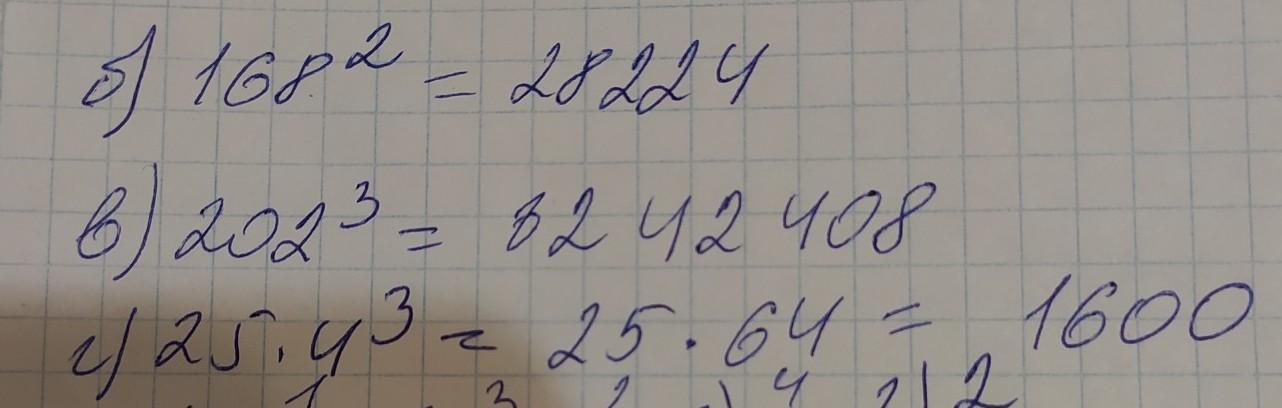 б) 168² = 28224
в) 202³ = 8242408
г) 25 · 4³ = 25 · 64 = 1600